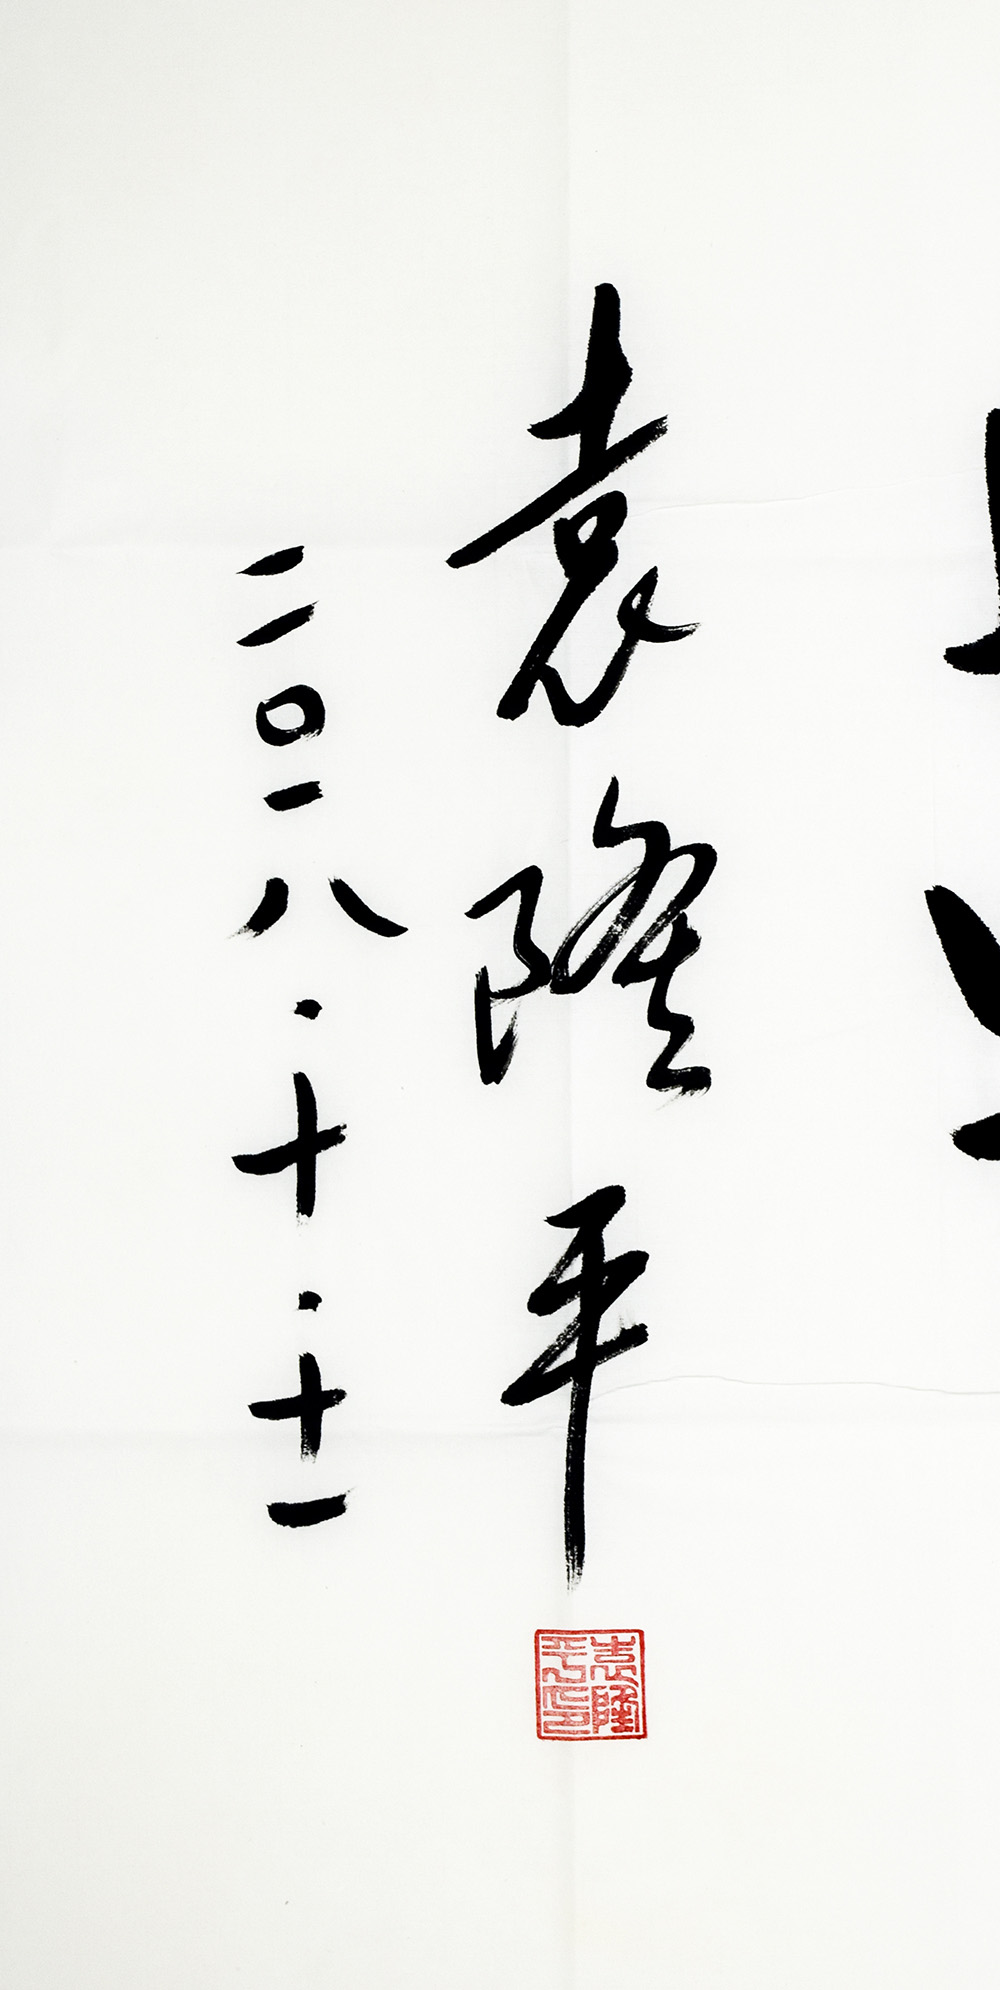 袁隆平
二〇一八·十·十一
袁隆平印